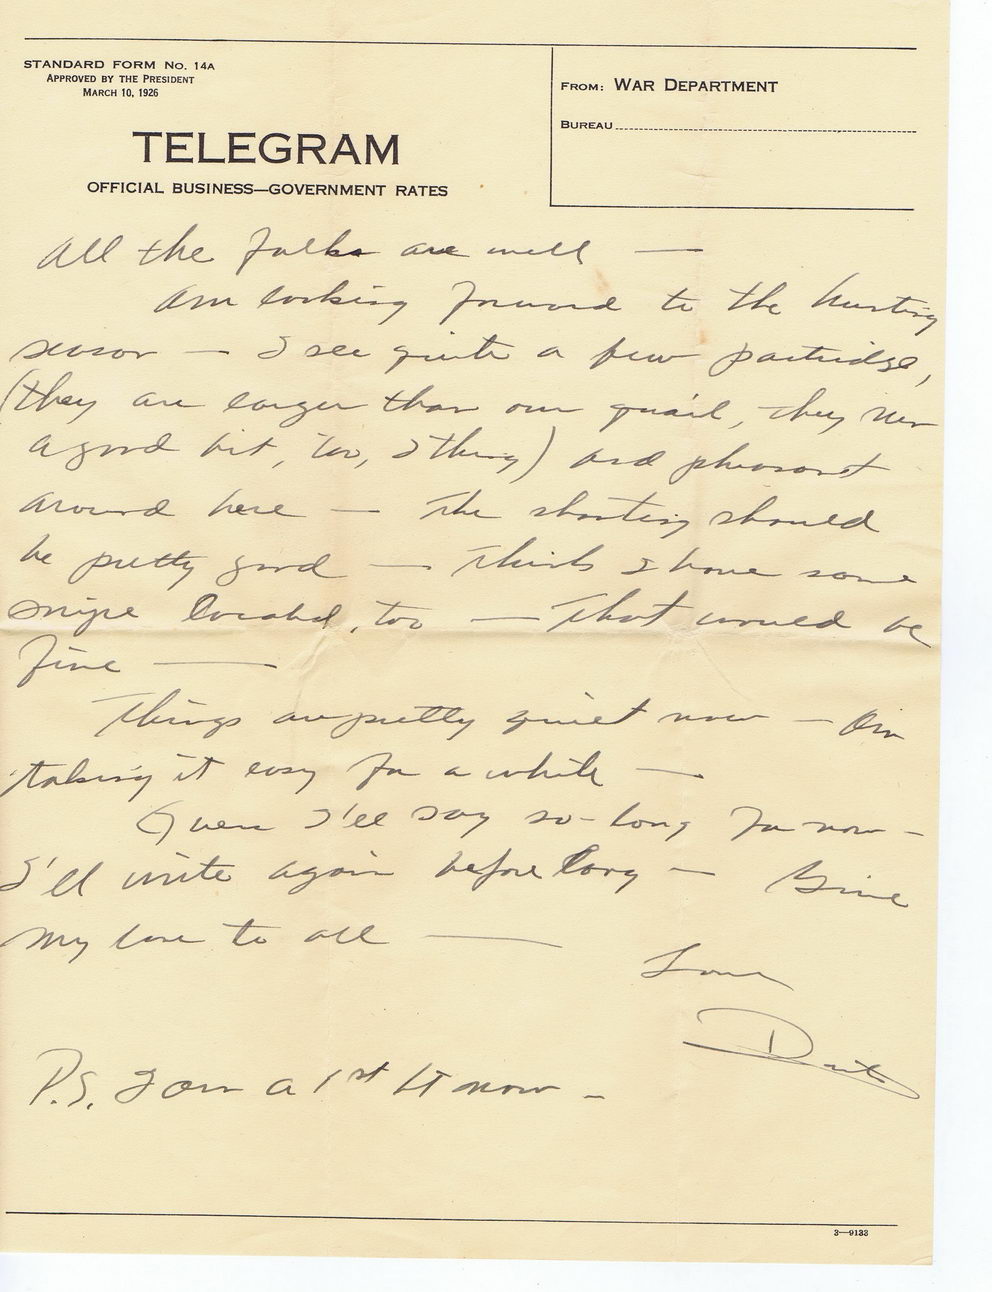 STANDARD FORM No. 14A
APPROVED BY THE PRESIDENT
MARCH 10, 1926
TELEGRAM
OFFICIAL BUSINESS—GOVERNMENT RATES
FROM: WAR DEPARTMENT
BUREAU
All the folks are well —
Am looking forward to the hunting
season — I see quite a few partridge,
(they are larger than our quail, they run
a good bit, too, I think) and pheasant
around here — The shooting should
be pretty good — Think I have some
snipe located, too — That would be
fine —
Things are pretty quiet now — Am
taking it easy for a while —
Guess I'll say so-long for now —
I'll write again before long — Give
my love to all —
Love
P.S. I am a 1st Lt now —
3—9133